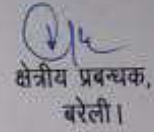 क्षेत्रीय प्रबन्धक,
बरेली।